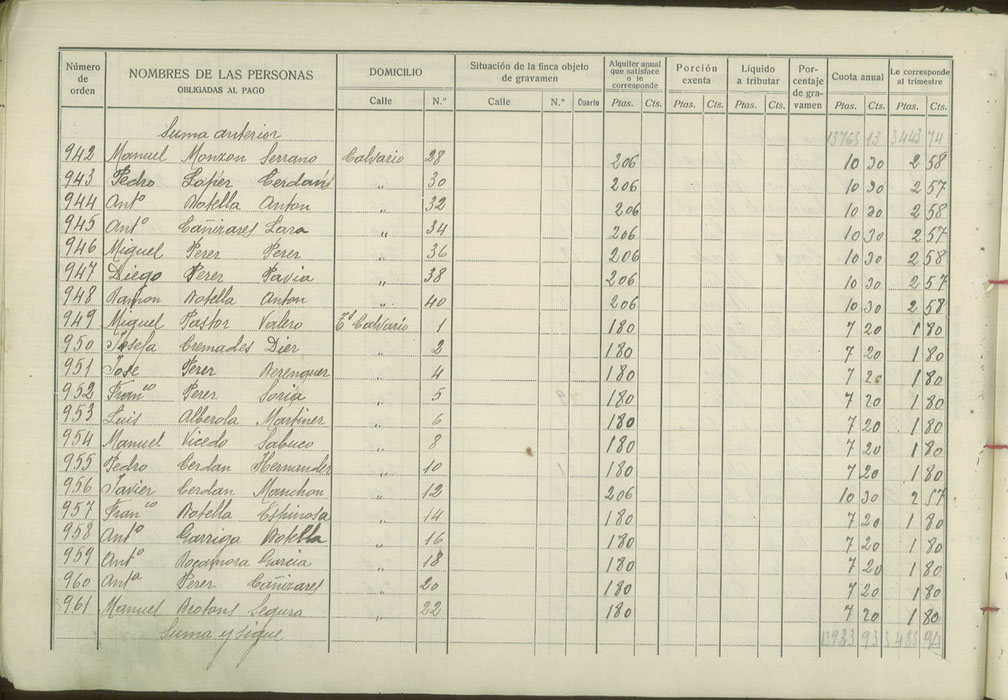 Número de orden | NOMBRES DE LAS PERSONAS OBLIGADAS AL PAGO | DOMICILIO | Situación de la finca objeto de gravamen | Alquiler anual que satisface o le corresponde | Porción exenta | Líquido a tributar | Porcentaje de gravamen | Cuota anual | Le corresponde al trimestre
Calle | N.º | Calle | N.º | Cuarto | Ptas. | Cts. | Ptas. | Cts. | Ptas. | Cts. | Ptas. | Cts. | Ptas. | Cts.
Suma anterior 13765 13 3443 74
942 Manuel Monzon Serrano Calvario 28 206 10 30 2 58
943 Pedro Lopez Cerdan " 30 206 10 30 2 57
944 Antº Botella Anton " 32 206 10 30 2 58
945 Antº Cañizares Lara " 34 206 10 30 2 57
946 Miguel Perez Perez " 36 206 10 30 2 58
947 Diego Perez Pavia " 38 206 10 30 2 57
948 Ramon Botella Anton " 40 206 10 30 2 58
949 Miguel Pastor Valero Calvario 1 180 7 20 1 80
950 Josefa Cremades Diez " 2 180 7 20 1 80
951 Jose Perez Berenguer " 4 180 7 20 1 80
952 Franco Perez Soria " 5 180 7 20 1 80
953 Luis Alberola Martinez " 6 180 7 20 1 80
954 Manuel Vicedo Sabuco " 8 180 7 20 1 80
955 Pedro Cerdan Hernandez " 10 180 7 20 1 80
956 Javier Cerdan Manchon " 12 206 10 30 2 57
957 Franco Botella Espinosa " 14 180 7 20 1 80
958 Antº Garriga Botella " 16 180 7 20 1 80
959 Antº Rocamora Garcia " 18 180 7 20 1 80
960 Antª Perez Cañizares " 20 180 7 20 1 80
961 Manuel Brotons Segura " 22 180 7 20 1 80
Suma y sigue 93